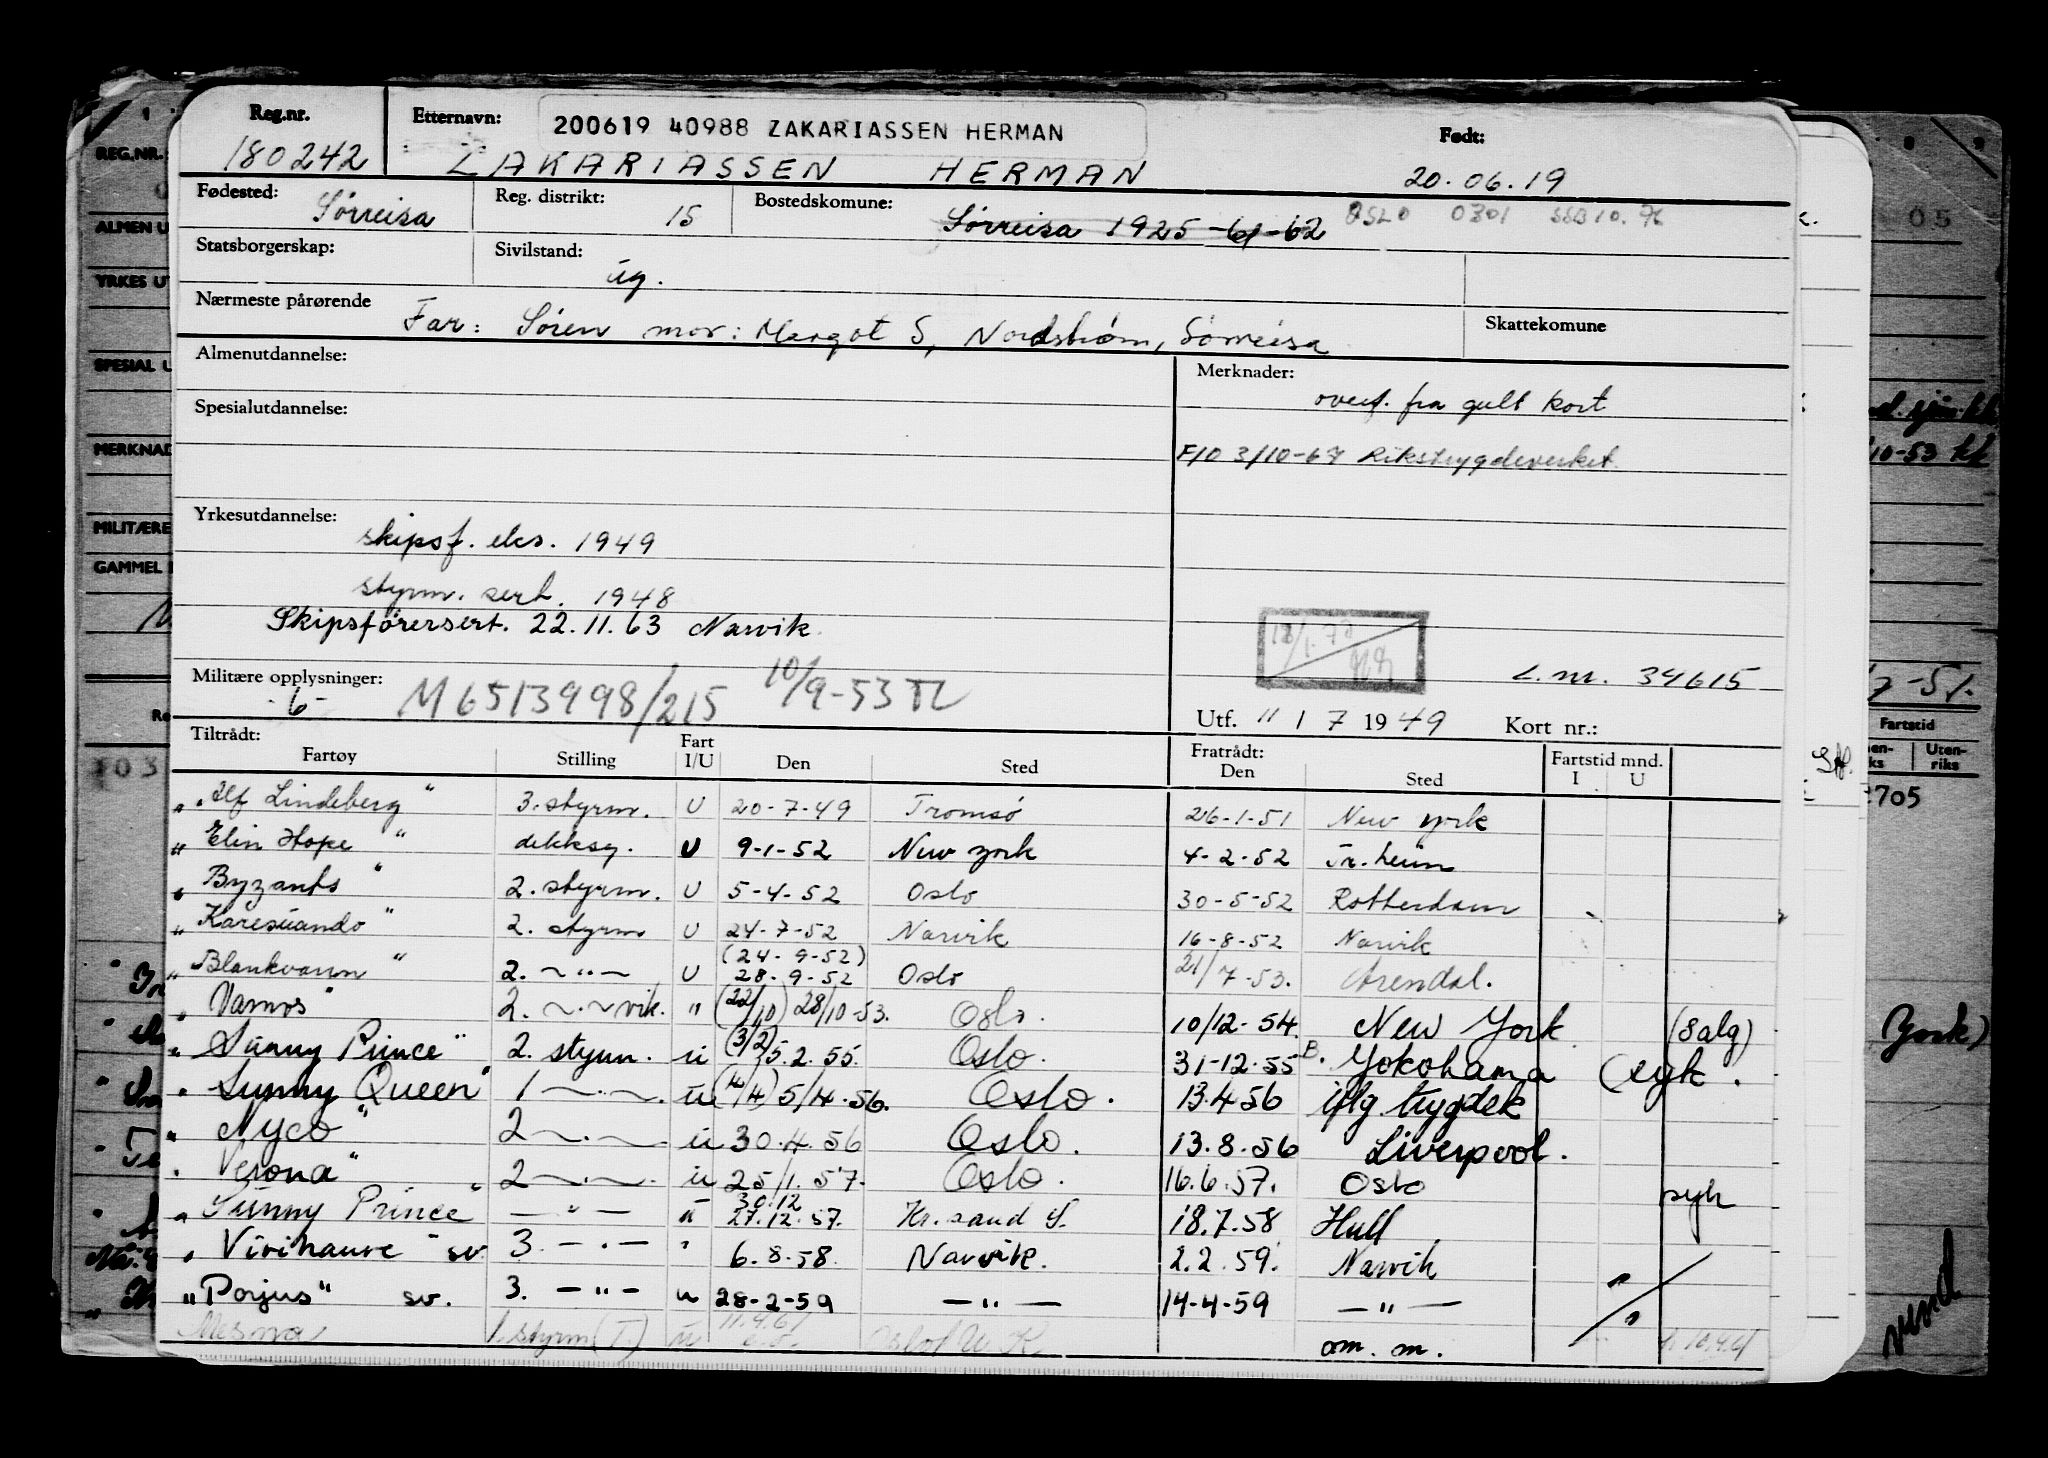 Reg.nr. Etternavn: 200619 40988 ZAKARIASSEN HERMAN Født:
180242 ZAKARIASSEN HERMAN 20.06.19
Fødested: Sørreisa Reg. distrikt: 15 Bostedskomune: Sørreisa 1925 -61-62 OSLO 0301 SSB 10. 76
Statsborgerskap: Sivilstand: ug.
Nærmeste pårørende Far: Søren mor: Margot S, Nordstrøm, Sørreisa Skattekomune
Almenutdannelse: Merknader:
overf. fra gult kort
Spesialutdannelse:
F/O 3/10-67 Rikstrygdeverket
Yrkesutdannelse: skipsf. eks. 1949
styrm. sert. 1948
Skipsförersert. 22.11.63 Narvik
L.nr. 34615
Militære opplysninger: -6- M6513998/215 10/9-53 TL
Utf. 11 / 7 1949 Kort nr.:
Tiltrådt: Fart Fratrådt: Fartstid mnd.
Fartøy Stilling I/U Den Sted Den Sted I U
"Alf Lindeberg" 3. styrm. U 20-7-49 Tromsø 26-1-51 New York
"Elin Hope" dekksg. U 9-1-52 New York 4-2-52 Tr.heim
"Byzants" 2. styrm. U 5-4-52 Oslo 30-5-52 Rotterdam
"Karesuando" 2. styrm U 24-7-52 Narvik 16-8-52 Narvik
(24-9-52)
"Blankvann" 2. -"- U 28-9-52 Oslo 21/7-53. Arendal.
"Vamos" 2. -"- vik. " (22/10) 28/10-53. Oslo. 10/12-54. New York (Salg)
"Sunny Prince" 2. styrm. u (3/2) 5.2.55. Oslo. 31-12-55 Yokohama (syk.
"Sunny Queen" 1 -"- u (4/4) 5/4.56. Oslo. 13.4 56 iflg trygdek
"Nyco" 2 -"- u 30.4.56 Oslo. 13.8.56 Liverpool.
"Verona" 2 -"- u 25/1.57. Oslo. 16.6.57. Oslo syk
30.12
"Sunny Prince" -"- u 27.12.57. Kr.sand S. 18.7.58 Hull
"Virihaure" sv. 3. -"- " 6.8.58 Narvik. 2.2.59. Narvik "
"Porjus" sv. 3. -"- u 28-2-59 -"- 14-4-59 -"- "
11.4.61
Mesna 1. styrm (T.) u Oslo am. m.
REG.NR.
ALMEN U
YRKES UT
SPESIAL U
MERKNAD
MILITÆRE
GAMMEL
103
05
10-53 kk
7-51.
Fartstid
Uten-
riks
2705
York)
vend